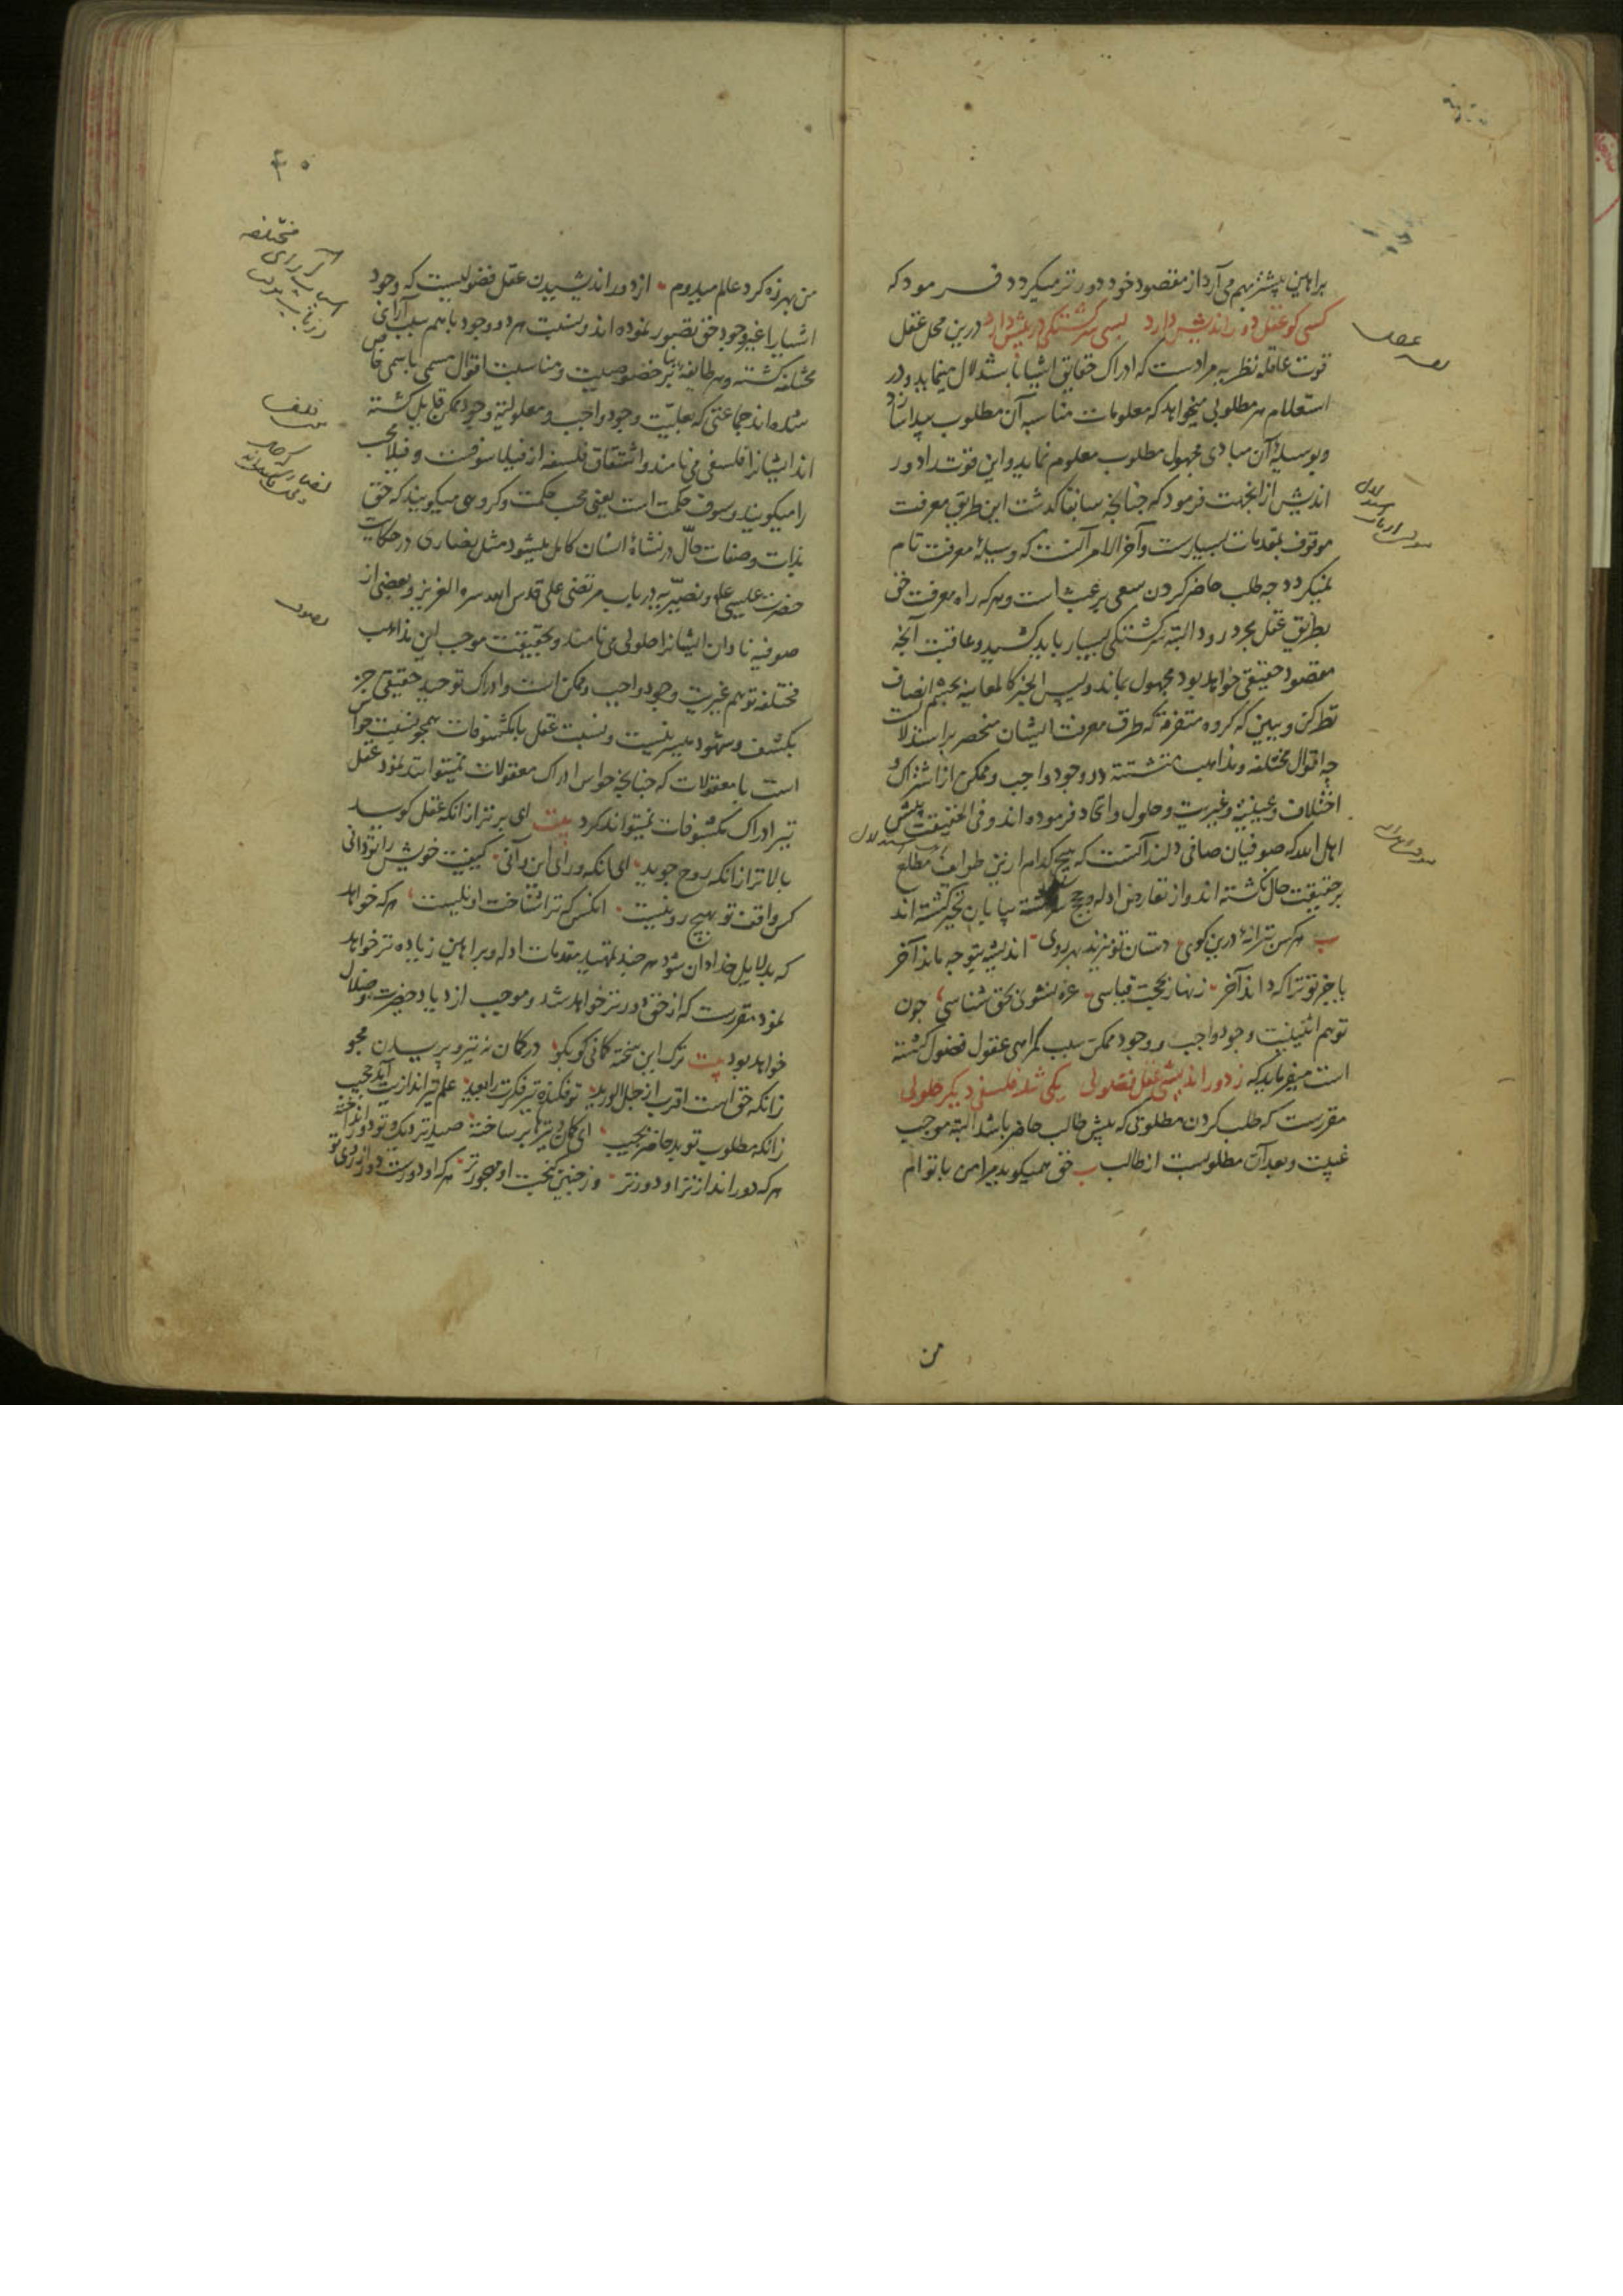 براهین بیشتر بهم می آرد از مقصود خود دورتر میگردد فرمود که
کسی کو عقل دور اندیش دارد بسی سرگشتگی در پیش دارد درین محل عقل
قوت عاقله نظریه مراد است که ادراک حقایق اشیا باستدلال مینماید و در
استعلام هر مطلوبی میخواهد که معلومات مناسبه آن مطلوب پیدا سازد
و بوسیلهٔ آن مبادی مجهول مطلوب معلوم نماید و این قوت را دور
اندیش از انجهت فرمود که چنانچه سابقا گذشت این طریق معرفت
موقوف بمقدمات بسیارست و آخر الامر آنست که وسیلهٔ معرفت تام
نمیگردد چه طلب حاضر کردن سعی بر عبث است و هر که راه معرفت حق
بطریق عقل مجرد رود البته سرگشتگی بسیار باید کشید و عاقبت آنچه
مقصود حقیقی خواهد بود مجهول بماند و لیس الخبر کالمعاینه بچشم انصاف
نظر کن و ببین که گروه متفرقه که طرق معرفت ایشان منحصر بر استدلالست
چه اقوال مختلفه و مذاهب متشتته در وجود واجب و ممکن از اشتراک و
اختلاف و عینیة و غیریت و حلول و اتحاد فرموده اند و فی الحقیقت پیش
اهل الله که صوفیان صافی دلند آنست که هیچ کدام ازین طوایف مطلع
بر حقیقت حال نگشته اند و از تعارض ادله و حجج سرگشته بیابان تحیر گشته اند
هر کس ترانهٔ درین کوی دستان تو میزند بهر روی اندیشه بتوجه ماند آخر
با جز تو ترا که داند آخر زنهار بحجت قیاسی غره نشوی بحق شناسی چون
توهم اثنینیت وجود واجب و وجود ممکن سبب گمراهی عقول فضول گشته
است میفرماید که ز دور اندیشی عقل فضولی یکی شد فلسفی دیگر حلولی
مقررست که طلب کردن مطلوبی که پیش طالب حاضر باشد البته موجب
غیبت و بعد آن مطلوبست از طالب حق همیگوید برامن با توام
من
من بهرزه گرد عالم میدوم از دور اندیشیدن عقل فضولیست که وجود
اشیا را غیر وجود حق تصور نموده اند و نسبت هر دو وجود با هم سبب آرای
مختلفه گشته و هر طایفه بنابر خصوصیت و مناسبت اقوال مسمی باسمی خاص
شده اند جماعتی که بعلیت وجود واجب و معلولیة وجود ممکن قایل گشته
اند ایشانرا فلسفی می نامند و اشتقاق فلسفه از فیلاسوفست و فیلا محب
را میگویند و سوف حکمت است یعنی محب حکمت و گروهی میگویند که حق
بذات و صفات حال در نشاهٔ انسان کامل میشود مثل نصاری در حکایت
حضرت عیسی علم و نصیریه در باب مرتضی علی قدس الله سره العزیز و بعضی از
صوفیه نادان ایشانرا حلولی می نامند و بحقیقت موجب این مذاهب
مختلفه توهم غیریت وجود واجب و ممکن است و ادراک توحید حقیقی جز
بکشف و شهود میسر نیست و نسبت عقل با مکشوفات همچو نسبت حواس
است با معقولات که چنانچه حواس ادراک معقولات نمیتوانند نمود عقل
نیز ادراک مکشوفات نمیتواند کرد بیت ای برتر از آنکه عقل گوید
بالاتر از آنکه روح جوید ای آنکه ورای این و آنی کیفیت خویش را تو دانی
کس واقف تو بهیچ رو نیست آنکس که ترا شناخت او نیست هر که خواهد
که بدلایل خدادان شود هر چند تمهید مقدمات ادله و براهین زیاده تر خواهد
نمود مقررست که از حق دورتر خواهد شد و موجب ازدیاد حیرت و ضلال
خواهد بود بیت ترک این سخته کمانی کو بگو در کمان نه تیر و پریدن مجو
زانکه حق است اقرب از حبل الورید تو فکنده تیر فکرت را بعید علم تیراندازیت آید حجیب
زانکه مطلوب تو بد حاضر بجیب ای کمان و تیرها بر ساخته صید نزدیک و تو دور انداخته
هر که دور اندازتر او دورتر وز چنین گنجست او مهجورتر هر که او دورست دور از روی تو
۴۰